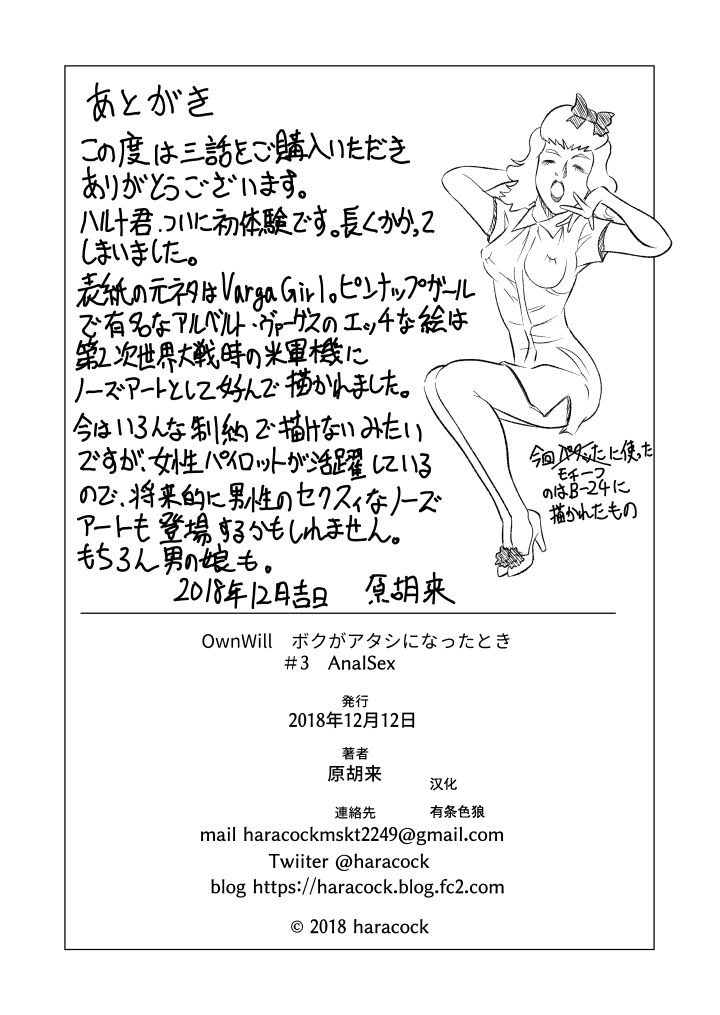 あとがき
この度は三話をご購入いただき
ありがとうございます。
ハルト君、ついに初体験です。長くかかって
しまいました。
表紙の元ネタはVarga Girl。ピンナップガール
で有名なアルベルト・ヴァーゲスのエッチな絵は
第2次世界大戦時の米軍機に
ノーズアートとして好んで描かれました。
今はいろんな制約で描けないみたい
ですが、女性パイロットが活躍している
ので、将来的に男性のセクスィなノーズ
アートも登場するかもしれません。
もちろん男の娘も。
2018年12月吉日 原胡来
今回
に使った
モチーフ
のはB-24に
描かれたもの
OwnWill ボクがアタシになったとき
#3 AnalSex
発行
2018年12月12日
著者
原胡来
汉化
連絡先
有条色狼
mail haracockmskt2249@gmail.com
Twiiter @haracock
blog https://haracock.blog.fc2.com
© 2018 haracock